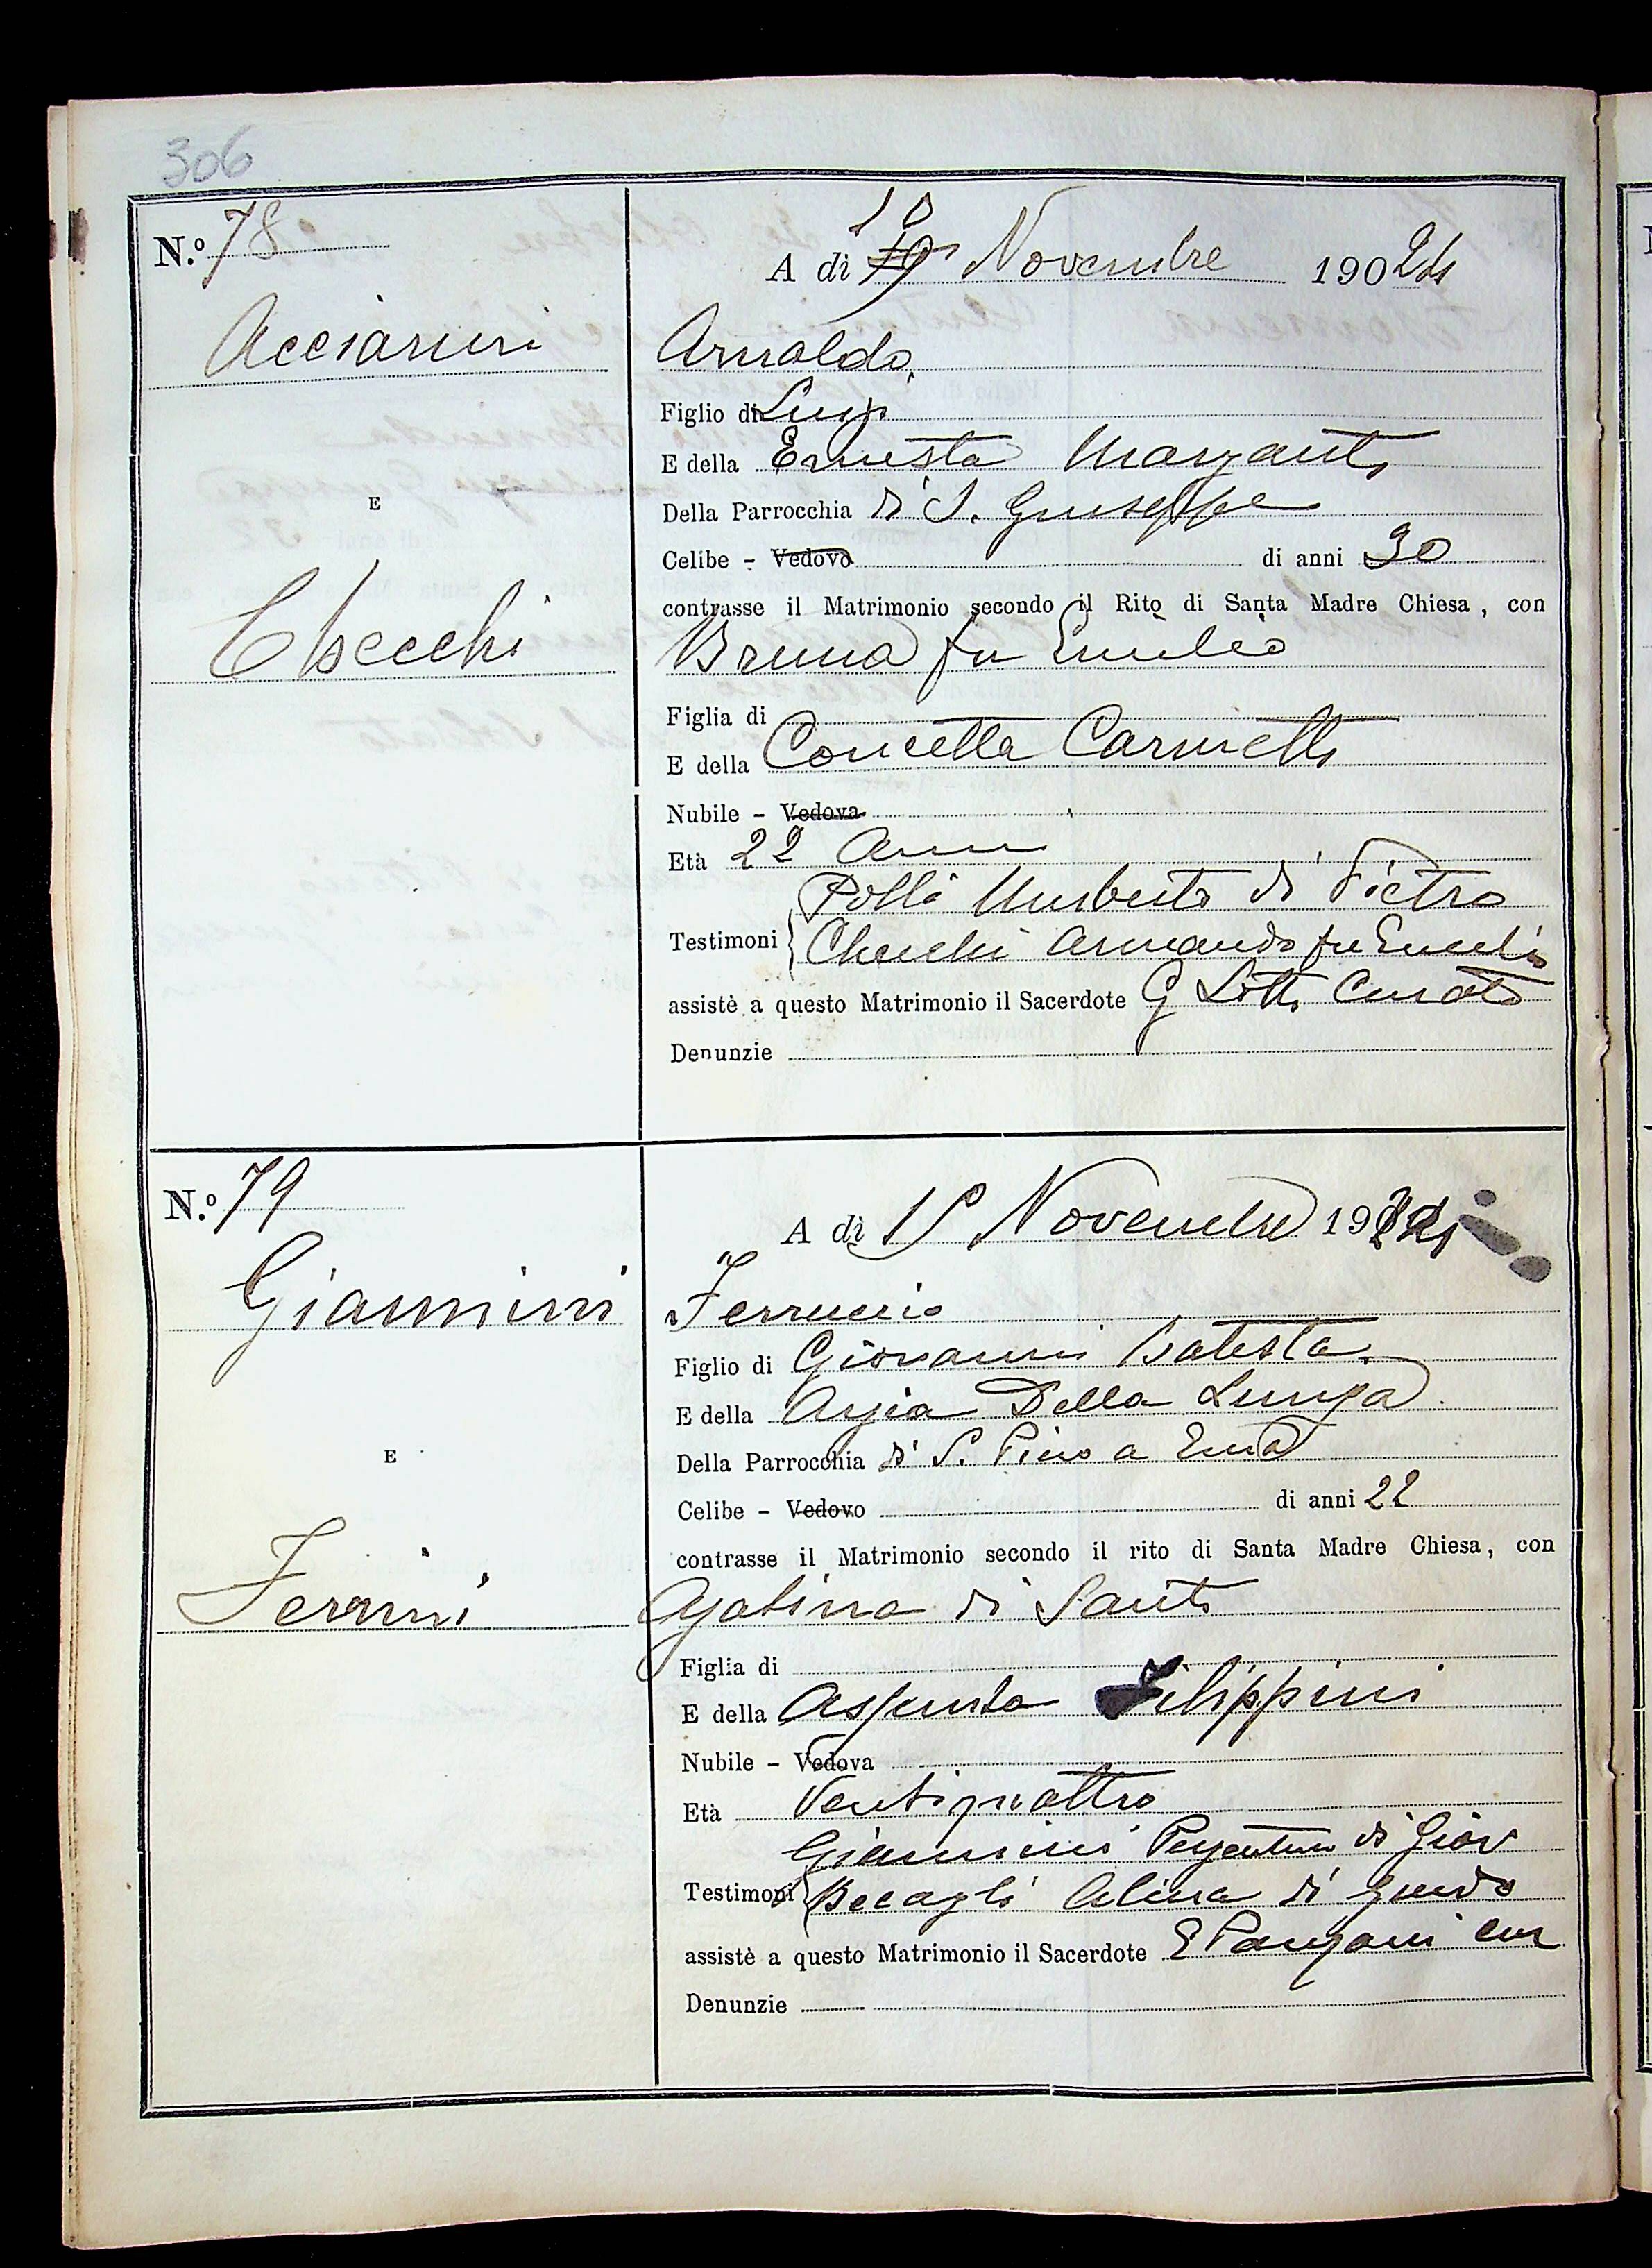 306
N.º 78
A dì 10 Novembre 1924
Acciarini
Arnaldo
Figlio di Luigi
E della Ernesta Marzanti
Della Parrocchia di S. Giuseppe
E
Celibe - Vedovo di anni 30
contrasse il Matrimonio secondo il Rito di Santa Madre Chiesa, con
Checchi
Bruna fu Emilio
Figlia di
E della Concetta Carmelli
Nubile - Vedova
Età 22 Anni
Polli Umberto di Pietro
Testimoni Checchi Armando fu Emilio
assistè a questo Matrimonio il Sacerdote G Lotti Curato
Denunzie
N.º 79
A dì Novembre 1924
Giannini
Ferruccio
Figlio di Giovanni Batista
E della Argia Della Lunga
Della Parrocchia di S. Piero a Ema
E
Celibe - Vedovo di anni 22
contrasse il Matrimonio secondo il rito di Santa Madre Chiesa, con
Ferrini
Gabina di Santi
Figlia di
E della Assunta Filippini
Nubile - Vedova
Età Ventiquattro
Giannini di Giov
Testimoni Becagli Alina di Guido
assistè a questo Matrimonio il Sacerdote E Panzani Cur
Denunzie